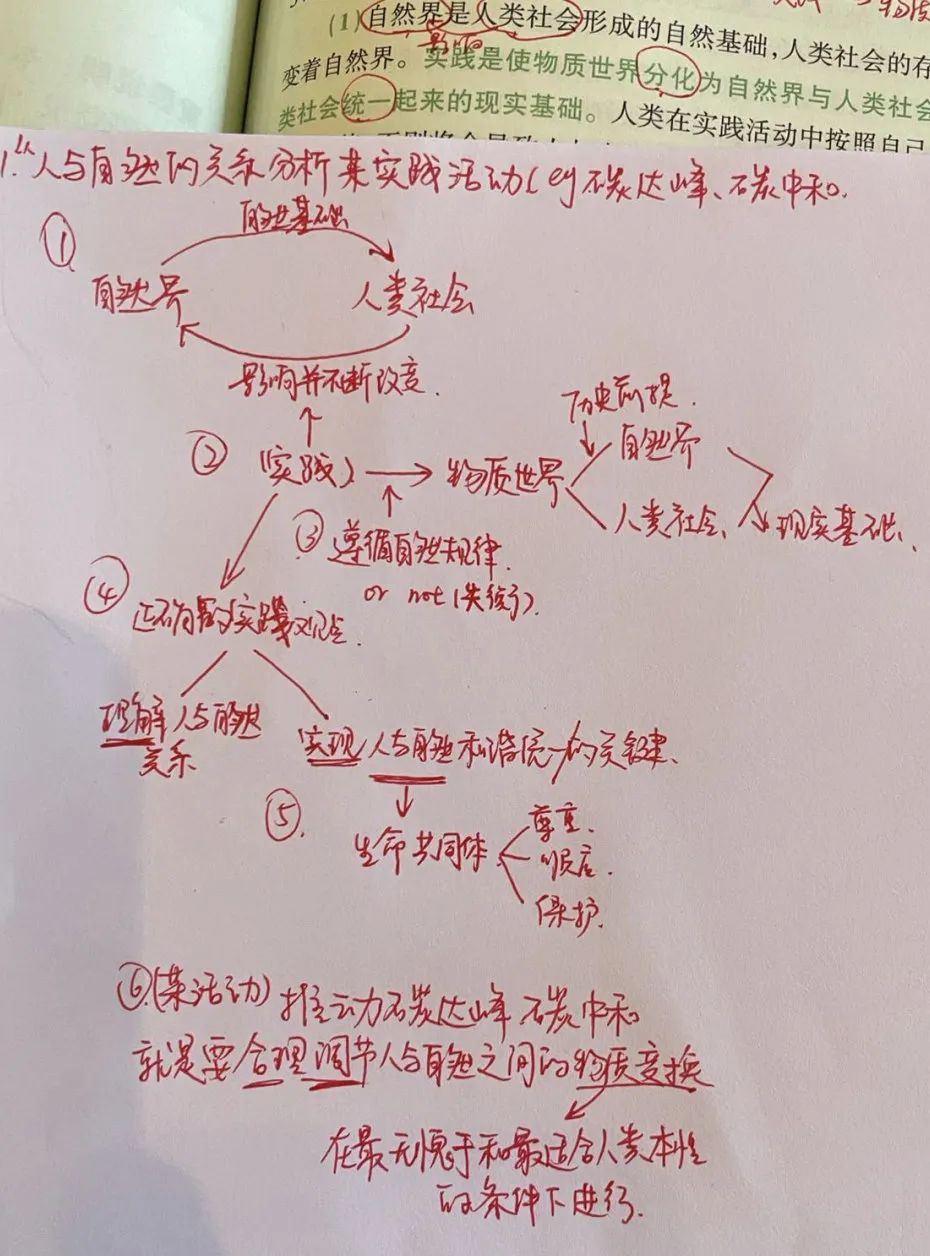 (1)自然界是人类社会形成的自然基础,人类社会的存
影响
变着自然界。实践是使物质世界分化为自然界与人类社会
类社会统一起来的现实基础。人类在实践活动中按照自己
1.从人与自然的关系分析某实践活动(eg 石炭达峰、石炭中和。
①
自然基础
自然界 人类社会
影响并不断改变.
历史前提.
② (实践) 物质世界 自然界
人类社会、现实基础、
③ 遵循自然规律.
or not(失衡).
④
正确的实践观点.
理解人与自然
关系
实现人与自然和谐统一的关键、
⑤.
生命共同体 尊重.
顺应.
保护.
⑥(某活动) 推动石炭达峰、石炭中和
就是要合理调节人与自然之间的物质变换
在最无愧于和最适合人类本性
的条件下进行.